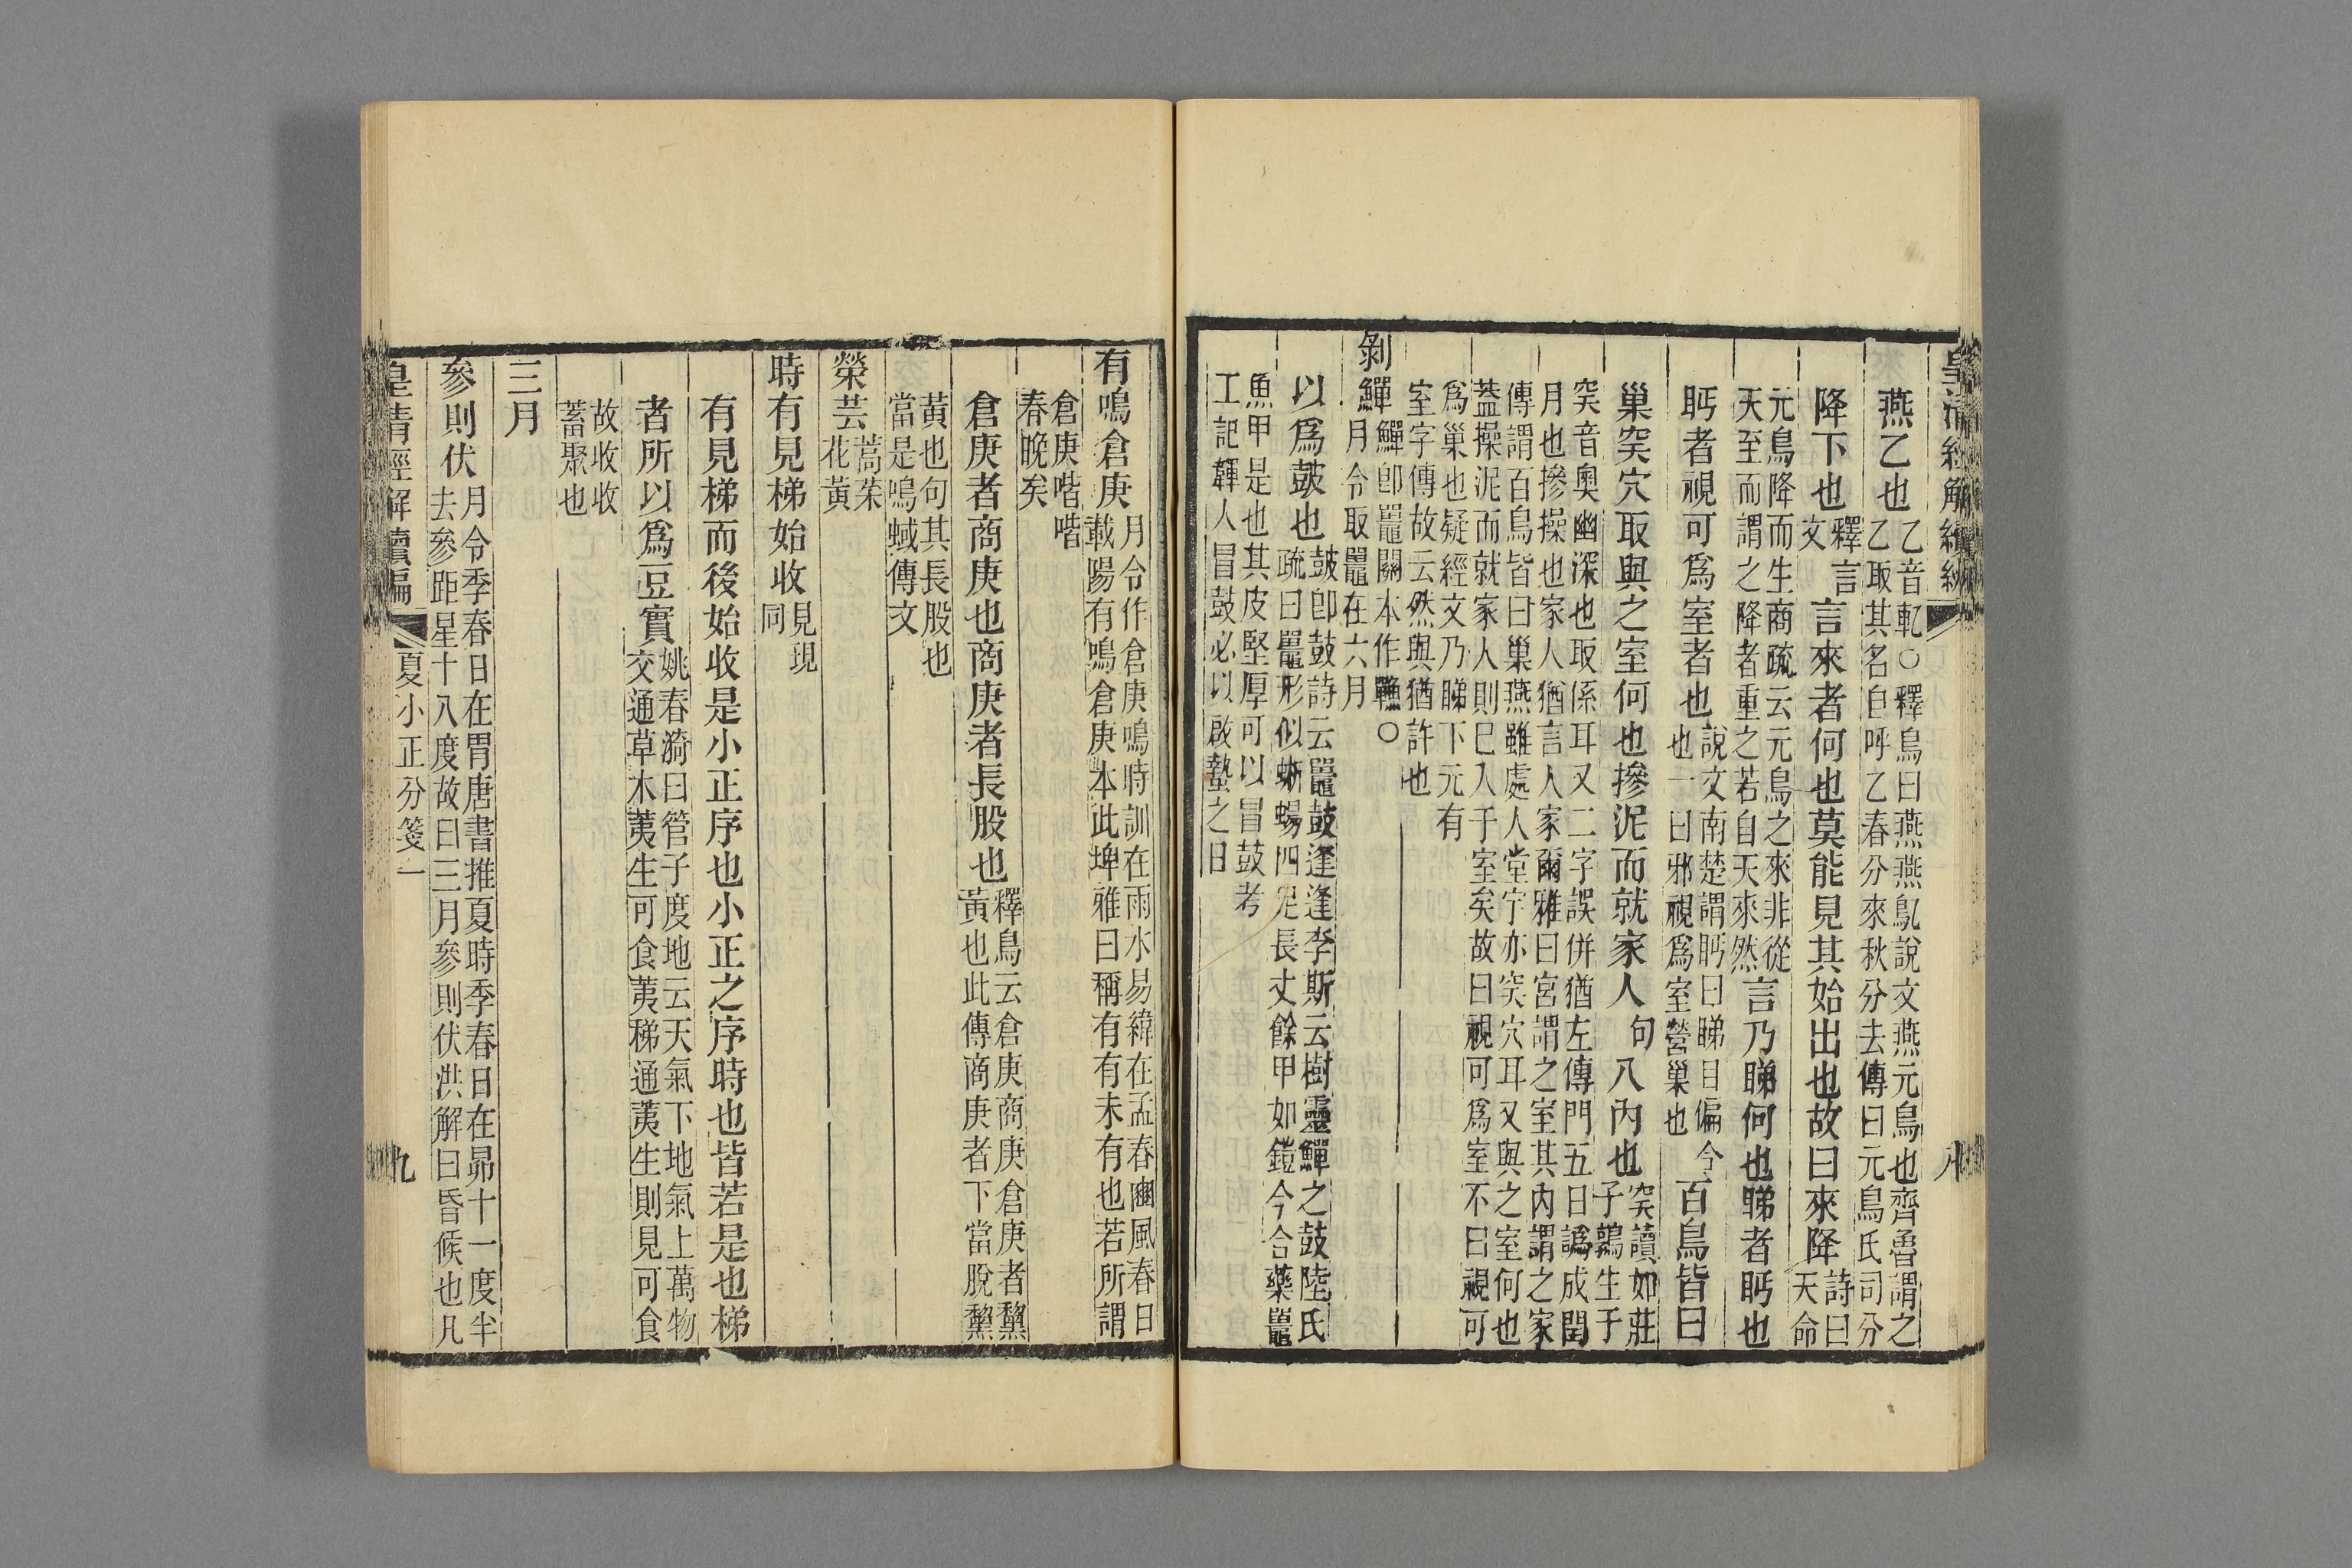 皇清經解續編 八
燕乙也乙音軋○釋鳥曰燕燕鳦說文燕元鳥也齊魯謂之
乙取其名自呼乙春分來秋分去傳曰元鳥氏司分
降下也釋言
文言來者何也莫能見其始出也故曰來降詩曰
天命
元鳥降而生商疏云元鳥之來非從
天至而謂之降者重之若自天來然言乃睇何也睇者眄也
眄者視可爲室者也說文南楚謂眄曰睇目偏合
也一曰邪視爲室營巢也百鳥皆曰
巢突穴取與之室何也操泥而就家人句入內也突讀如莊
子鶉生于
突音奧幽深也取係耳又二字誤併猶左傳門五日譌成閏
月也摻操也家人猶言人家爾雅曰宮謂之室其內謂之家
傳謂百鳥皆曰巢燕雖處人堂宇亦突穴耳又與之室何也
蓋操泥而就家人則已入于室矣故曰視可爲室不曰視可
爲巢也疑經文乃睇下元有
室字傳故云然與猶許也
剝鱓鱓卽鼉關本作鼍○
月令取鼉在六月
以爲皷也皷卽鼓詩云鼉鼓逢逢李斯云樹靈鱓之鼓陸氏
疏曰鼉形似蜥蜴四足長丈餘甲如鎧今合藥鼉
魚甲是也其皮堅厚可以冒鼓考
工記韗人冒鼓必以啟蟄之日
有鳴倉庚月令作倉庚鳴時訓在雨水易緯在孟春豳風春日
載陽有鳴倉庚本此埤雅曰稱有有未有也若所謂
倉庚喈喈
春晚矣
倉庚者商庚也商庚者長股也釋鳥云倉庚商庚倉庚者鵹
黃也此傳商庚者下當脫鵹
黃也句其長股也
當是鳴蜮傳文
榮芸蒿菜
花黃
時有見稊始收見現
同
有見稊而後始收是小正序也小正之序時也皆若是也稊
者所以爲豆實姚春漪曰管子度地云天氣下地氣上萬物
交通草木荑生可食荑稊通荑生則見可食
故收收
蓄聚也
三月
參則伏月令季春日在胃唐書推夏時季春日在昴十一度半
去參距星十八度故曰三月參則伏洪解曰昏候也凡
皇清經解續編 夏小正分箋一 九